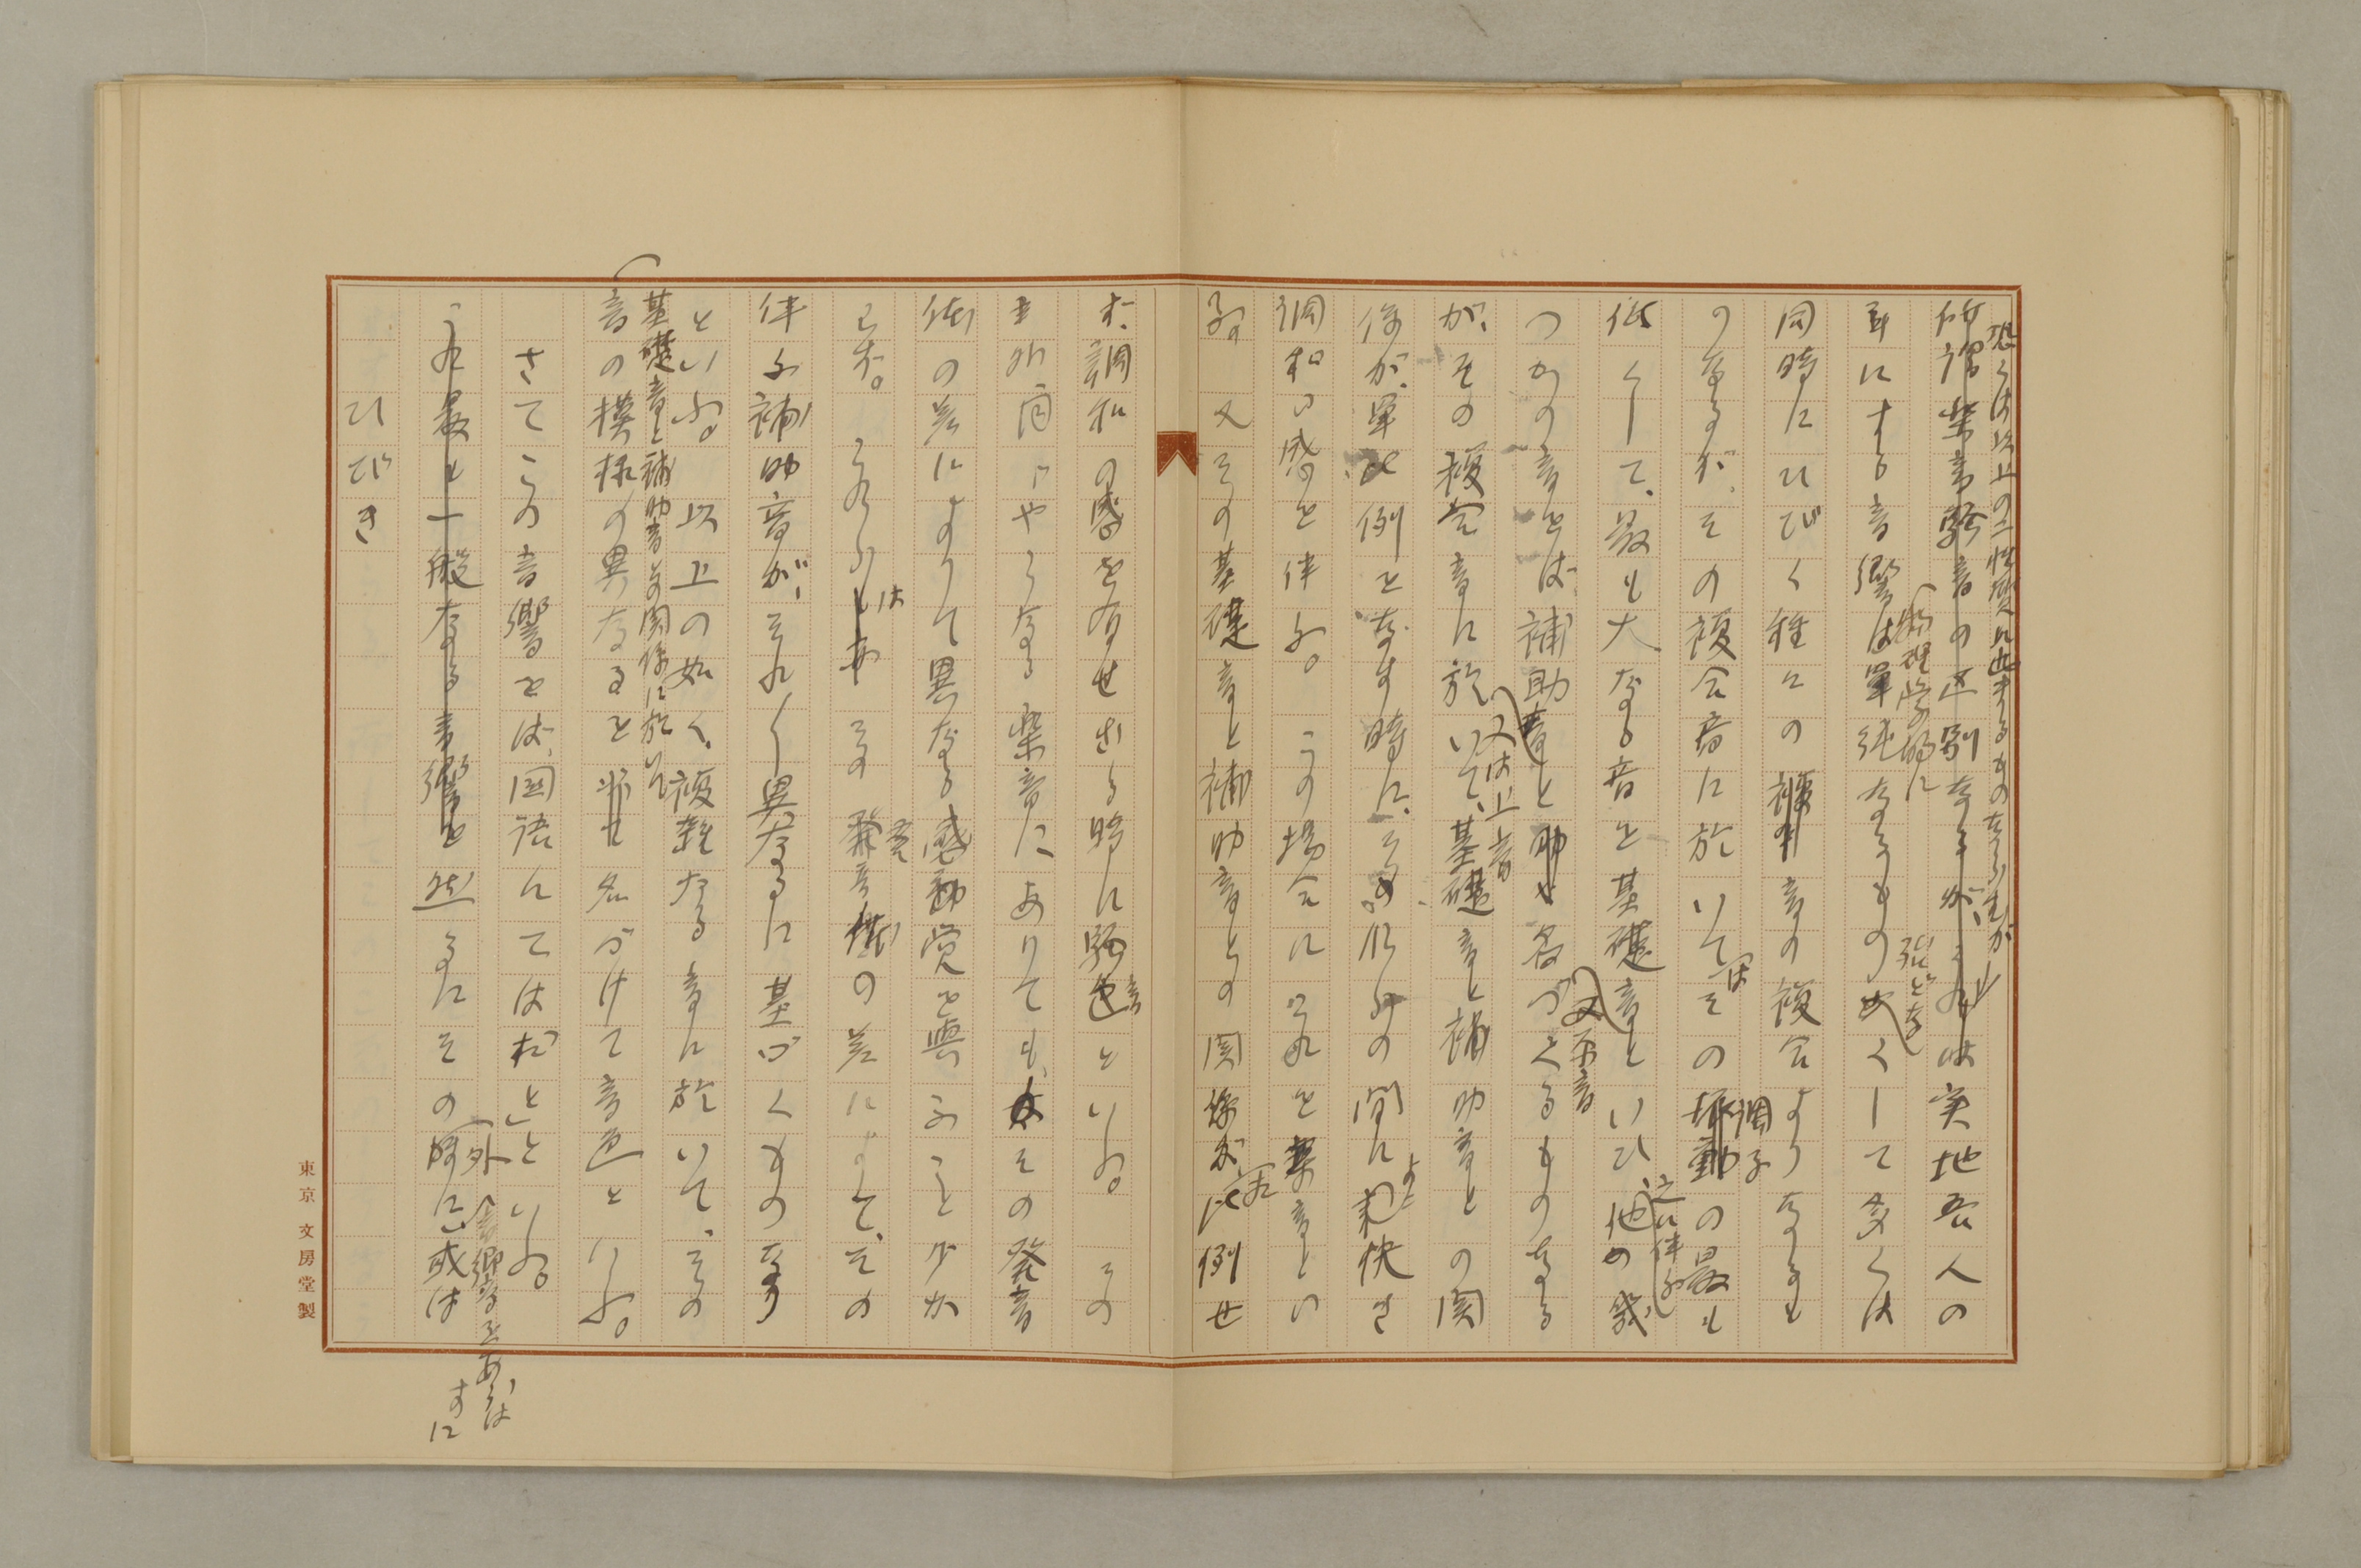 恐らくは以上の二性質に出するものならむが
所謂楽音騒音の区別なるが、これは実地吾人の
耳にする音響は単純なるもの殆どなくして多くは
(物理学的に
同時にひびく種々の音の複合よりなるも
のなるが、その複合音に於いてはその調子の最も
低くして、最も大なる音を基礎音といひ、之に伴ふ他の幾
(又原音)
つかの音をば補助音と名づくるものなる
(又は上音)
が、その複合音に於いて、基礎音と補助音との関
係が、単比例をなす時に、それらの間によく快き
調和の感を伴ふ。この場合にこれを楽音とい
ふ。又その基礎音と補助音との関係が比例せ
ず、調和の感を有せざる時に騒音といふ。その
同じやうなる楽音にありても、その発音
体の差によりて異なる感動覚を与ふること少か
らず。これらは その発音体の差によりて、その
伴ふ補助音が、それ〳〵異なるに基づくものなり
といふ。以上の如く、複雑なる音に於いて、その
基礎音と補助音との関係に於いて
音の模様の異なるを名づけて音色といふ。
さてこの音響をば、国語にては「おと」といふ。
(外
音響をあらは
すに
これ最も一般なる音響を 然るにその
或は
ひびき
東京 文房堂製